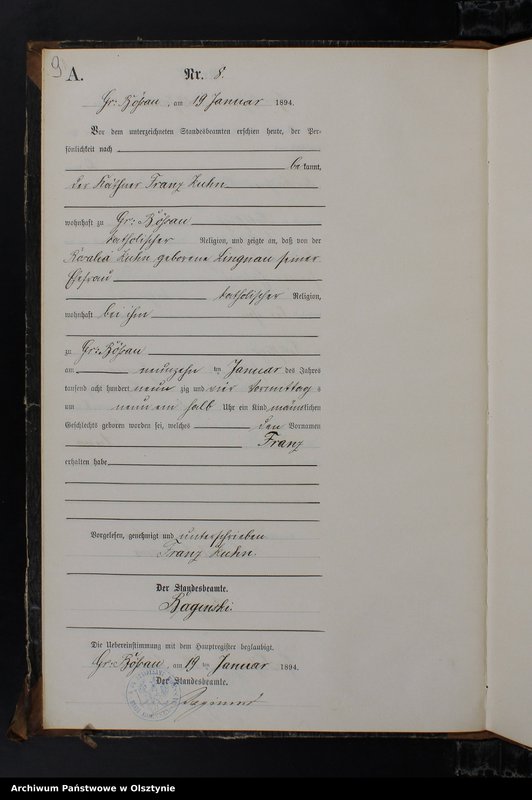 9
A.
Nr. 8.
Gr: Bößau, am 19 Januar 1894.
Vor dem unterzeichneten Standesbeamten erschien heute, der Per-
sönlichkeit nach
be kannt,
der Käthner Franz Kuhn
wohnhaft zu Gr: Bößau
katholischer Religion, und zeigte an, daß von der
Rosalia Kuhn geborene Lingnau seiner
Ehefrau
katholischer Religion,
wohnhaft bei ihm
zu Gr: Bößau
am neunzehn ten Januar des Jahres
tausend acht hundert neun zig und vier Vormittags
um neun ein halb Uhr ein Kind männlichen
Geschlechts geboren worden sei, welches den Vornamen
Franz
erhalten habe
Vorgelesen, genehmigt und unterschrieben
Franz Kuhn.
Der Standesbeamte.
Die Uebereinstimmung mit dem Hauptregister beglaubigt.
Gr: Bößau, am 19 ten Januar 1894.
Der Standesbeamte.
Archiwum Państwowe w Olsztynie